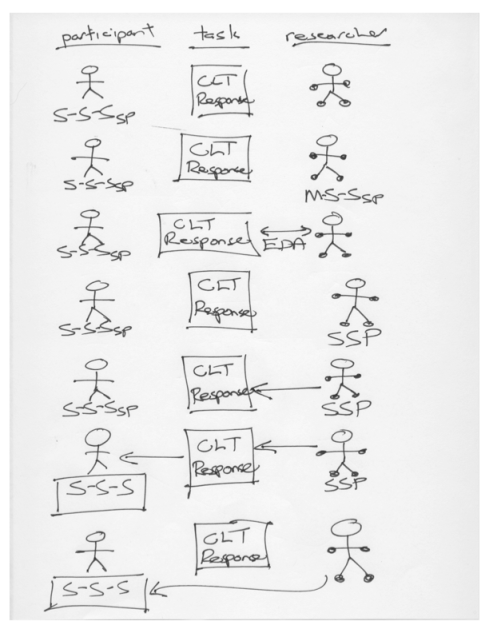 participant task researcher
CLT
Response
S-S-SSP
CLT
Response
S-S-SSP M-S-SSP
CLT
Response
S-S-SSP EDA
CLT
Response
S-S-SSP SSP
CLT
Response
S-S-SSP SSP
CLT
Response
S-S-S SSP
CLT
Response
S-S-S